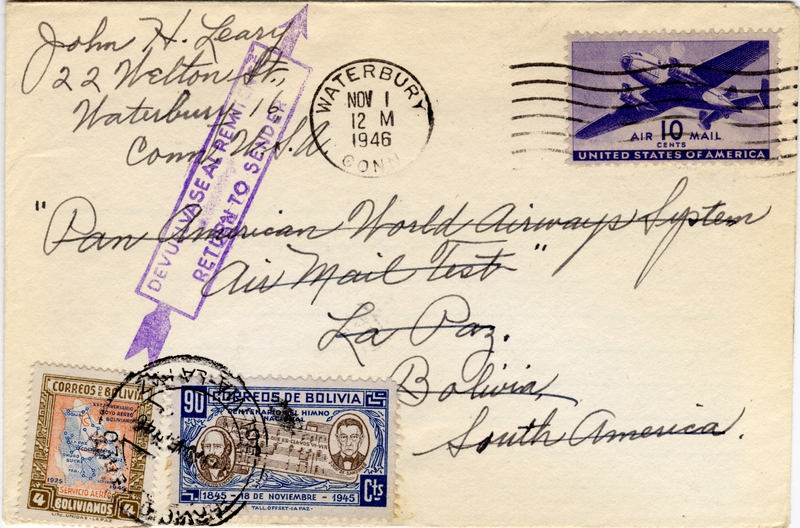 John H. Leary
22 Welton St.,
Waterbury 16
Conn. U.S.A
DEVUELVASE AL REMITENTE
RETURN TO SENDER
WATERBURY
NOV 1
12 M
1946
CONN
AIR 10 MAIL
CENTS
UNITED STATES OF AMERICA
"Pan American World Airways System
Air Mail Test"
La Paz.
Bolivia,
South America.
CORREOS DE BOLIVIA
1925
SERVICIO AEREO
4 4
BOLIVIANOS
LIT. UNIDAS-LA PAZ
90 CORREOS DE BOLIVIA
CENTENARIO DEL HIMNO
NACIONAL
1845 - 18 DE NOVIEMBRE - 1945
Cts
TALL. OFFSET-LA PAZ-